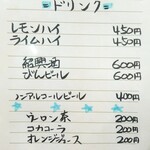 =ドリンク=
レモンハイ 450円
ライムハイ 450円
紹興酒 600円
びんビール 600円
ノンアルコールビール 400円
ウーロン茶 200円
コカコーラ 200円
オレンジジュース 200円